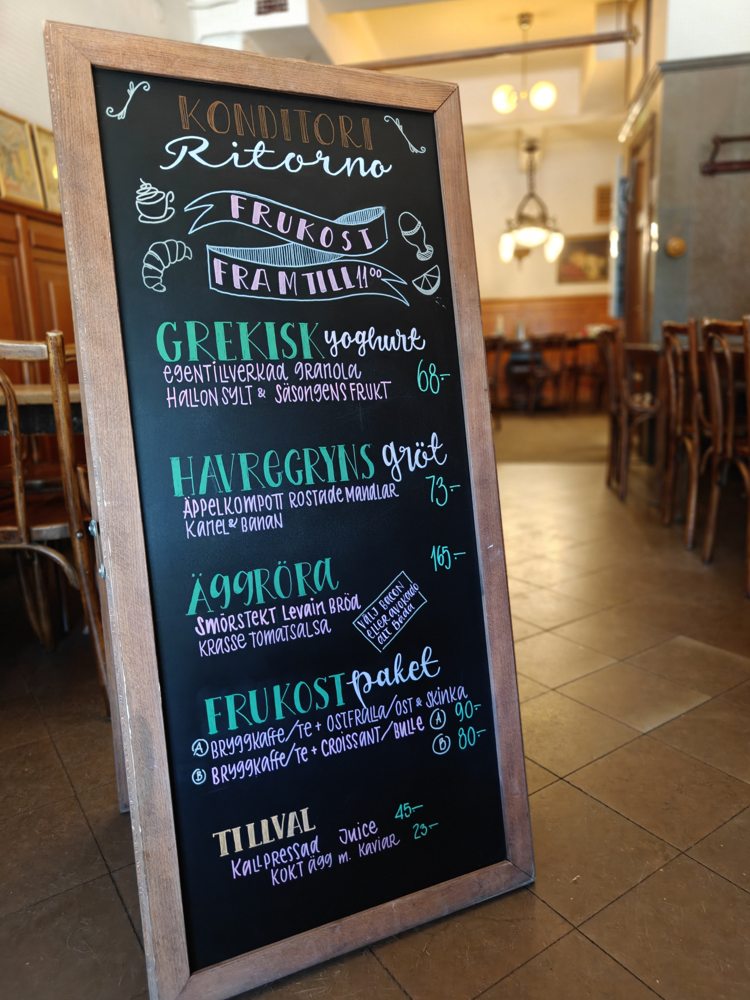 KONDITORI
Ritorno
FRUKOST
FRAM TILL 11 00
GREKISK yoghurt
egentillverkad granola
Hallonsylt & säsongens frukt 68:-
HAVREGRYNS gröt
Äppelkompott rostade mandlar 73:-
Kanel & Banan
ÄGGRÖRA 165:-
Smörstekt Levain Bröd
Krasse tomatsalsa
Välj Bacon
eller avokado
ell. Båda
FRUKOST paket
A Bryggkaffe/te + Ostfralla/ost & skinka A 90:-
B Bryggkaffe/te + croissant/Bulle B 80:-
TILLVAL
Kallpressad Juice 45:-
Kokt ägg m. Kaviar 23:-